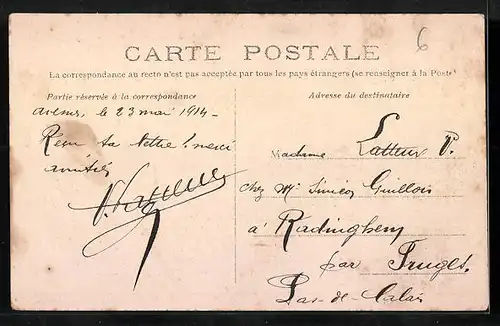 6
CARTE POSTALE
La correspondance au recto n'est pas acceptée par tous les pays étrangers (se renseigner à la Poste)
Partie réservée à la correspondance
Adresse du destinataire
le 23 mai 1914 -
Reçu ta lettre ! merci
amitiés
Madame Latteux P.
chez Mr Siméon Guillois
à Radinghem
par Fruges.
Pas-de-Calais